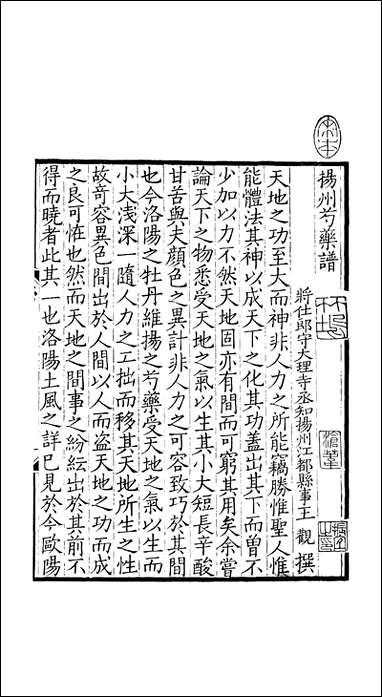 揚州芍藥譜
將仕郎守大理寺丞知揚州江都縣事王 觀 撰
天地之功至大而神非人力之所能竊勝惟聖人惟
能體法其神以成天下之化其功蓋出其下而曾不
少加以力不然天地固亦有間而可窮其用矣余嘗
論天下之物悉受天地之氣以生其小大短長辛酸
甘苦與夫顔色之異計非人力之可容致巧於其間
也今洛陽之牡丹維揚之芍藥受天地之氣以生而
小大淺深一隨人力之工拙而移其天地所生之性
故竒容異色間出於人間以人而盗天地之功而成
之良可恠也然而天地之間事之紛紜出於其前不
得而曉者此其一也洛陽土風之詳已見於今歐陽